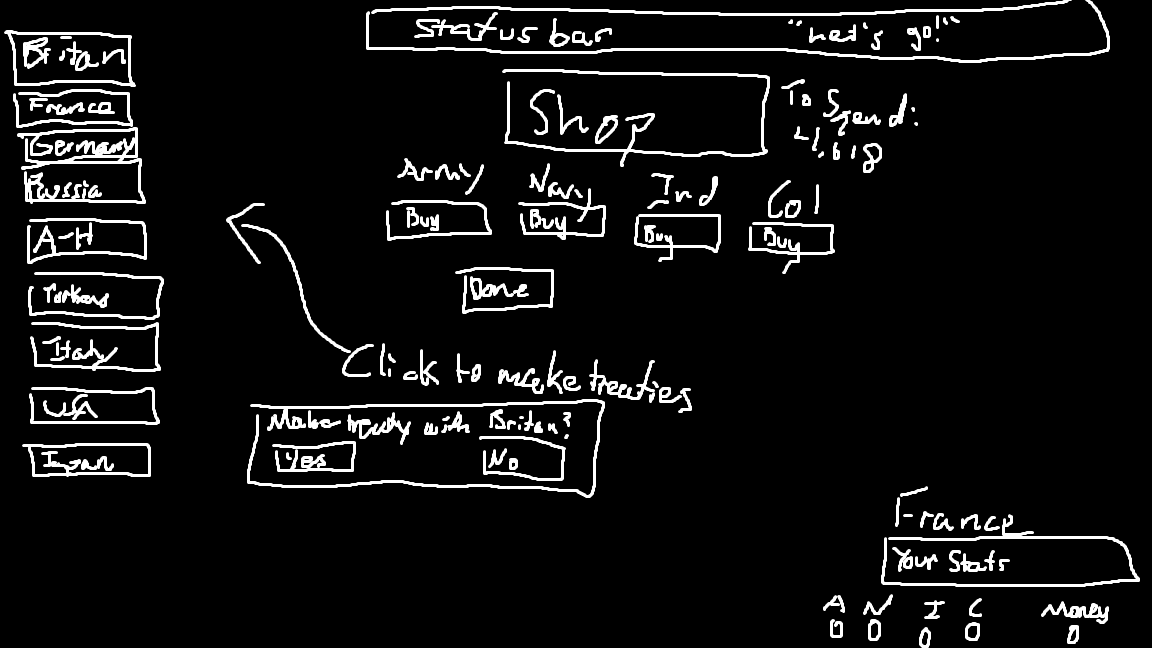 Status bar "Let's go!"
Britan
France
Germany
Russia
A-H
Italy
USA
Shop
To Spend:
Army Navy Ind Col
Buy Buy Buy Buy
Done
Click to make treaties
Make treaty with Britan?
Yes No
France
Your Stats
A N I C Money
0 0 0 0 0